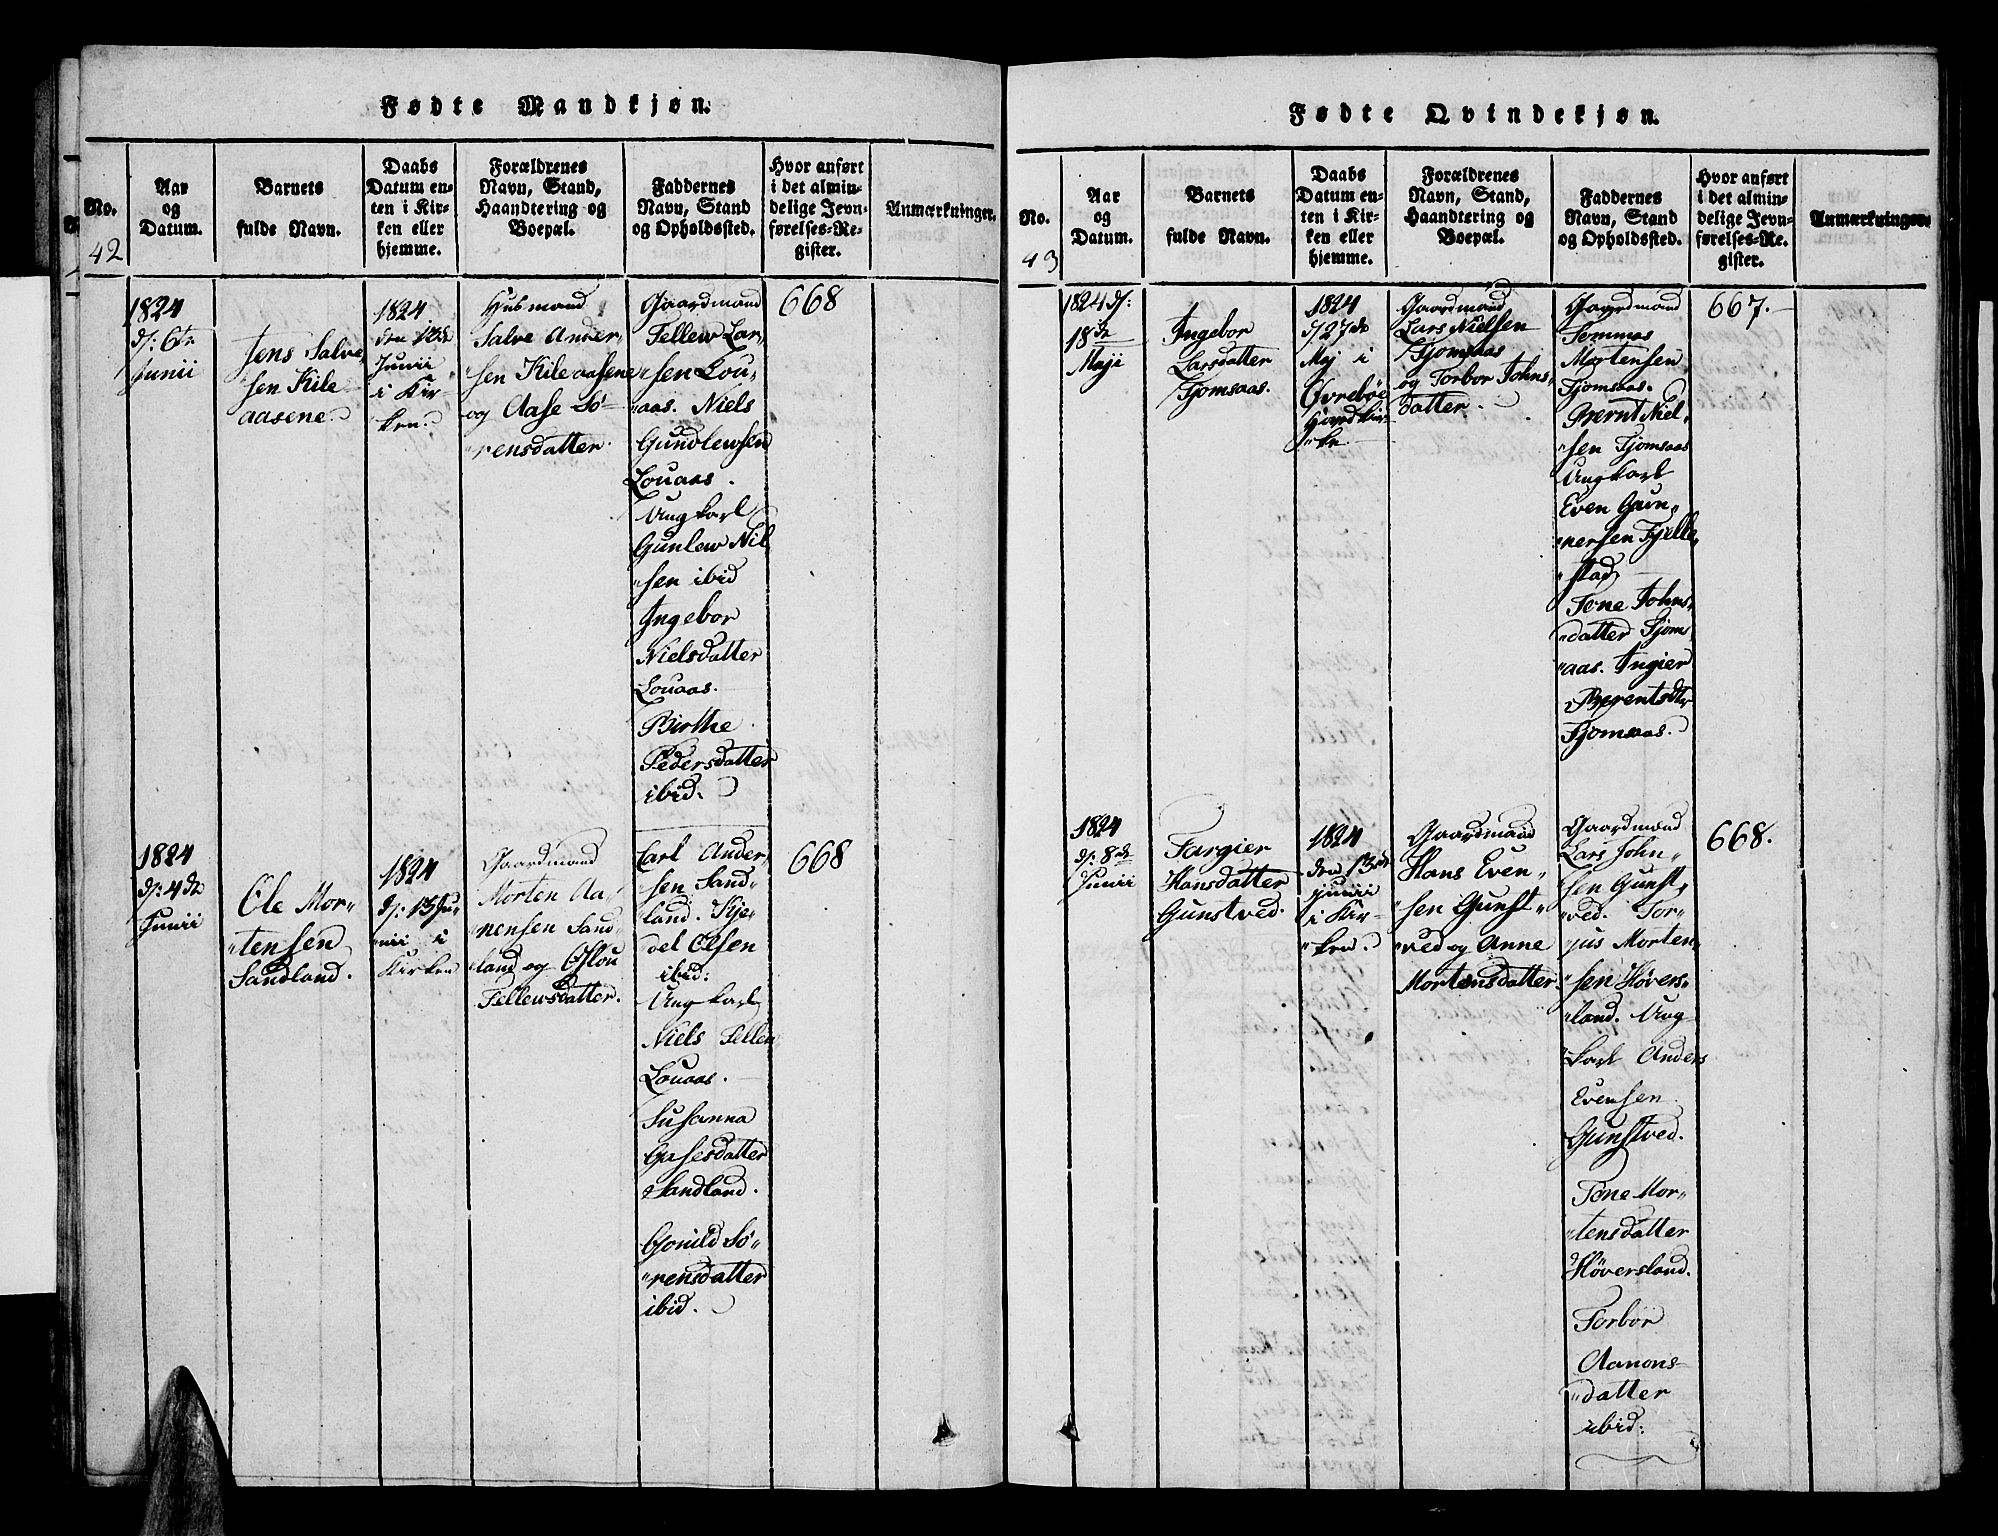 Fødte Mandkjøn.
No.
42
Aar
og
Datum.
Barnets
fulde Navn.
Daabs
Datum en-
ten i Kir-
ken eller
hjemme.
Forældrenes
Navn, Stand,
Haandtering og
Boepæl.
Faddernes
Navn, Stand
og Opholdssted.
Hvor anført
i det almin-
delige Jevn-
førelses-Re-
gister.
Anmærkninger.
1824
d: 6te
Junii
Jens Salve
sen Kile
aasene.
1824.
den 12te
Junii
i Kir
ken.
Husmand
Salve Ander
sen Kileaasene
og Aase Sö-
rensdatter.
Gaardmand
Fellew Lar,,
sen Lou,,
aas. Niels
Gundlewsen
Louaas.
Ungkarl
Gunlew Nil
sen ibid
Ingebor
Nielsdatter
Louaas.
Birthe
Pedersdatter
ibid.
668
1824
d: 4de
Junii
Ole Mor,,
tensen
Sandland.
1824
d: 13 Ju,,
nii i
Kirken
Gaardmand
Morten Aa,,
nensen Sand,,
land og Oslou
Fellewsdatter.
Carl Ander,,
sen Sand,,
land. Kje,,
del Olsen
ibid:
Ungkarl
Niels Fellew
Louaas.
Susanna
Gusesdatter
Sandland.
Gonild Sö,,
rensdatter
ibid.
668
Fødte Qvindekjøn.
No.
43
Aar
og
Datum.
Barnets
fulde Navn.
Daabs
Datum en-
ten i Kir-
ken eller
hjemme.
Forældrenes
Navn, Stand,
Haandtering og
Boepæl.
Faddernes
Navn, Stand
og Opholdssted.
Hvor anført
i det almin-
delige Jevn-
førelses-Re-
gister.
Anmærkninger.
1824 d:
18de
Maji
Ingebor
Larsdatter
Tjomsaas.
1824
d 27de
Maj i
Øvrebøe
Hovedkir
ke
Gaardmand
Lars Nielsen
Tjomsaas
og Torbor Johns,,
datter.
Gaardmand
Tommas
Mortensen
Tjomsaas.
Bernt Niel,,
sen Tjomsaas
Ungkarl
Even Gun,,
nersen Fjelle,,
stad
Tone Johns,,
datter Tjoms,,
aas. Ingier
Berentsdtr
Tjomsaas.
667.
1824
d: 8de
Junii
Targier
Hansdatter
Gunstved.
1824
den 13de
Junii
i Kir,,
ken.
Gaardmand
Hans Even,,
sen Gunst,,
ved og Anne
Mortensdatter.
Gaardmand
Lars John,,
sen Gunst,,
ved. Tor,,
jus Morten,,
sen Høvers,,
land. Ung-
karl Anders
Evensen
Gunstved.
Tone Mor,,
tensdatter
Høversland.
Torbör
Aanons-
datter
ibid:
668.